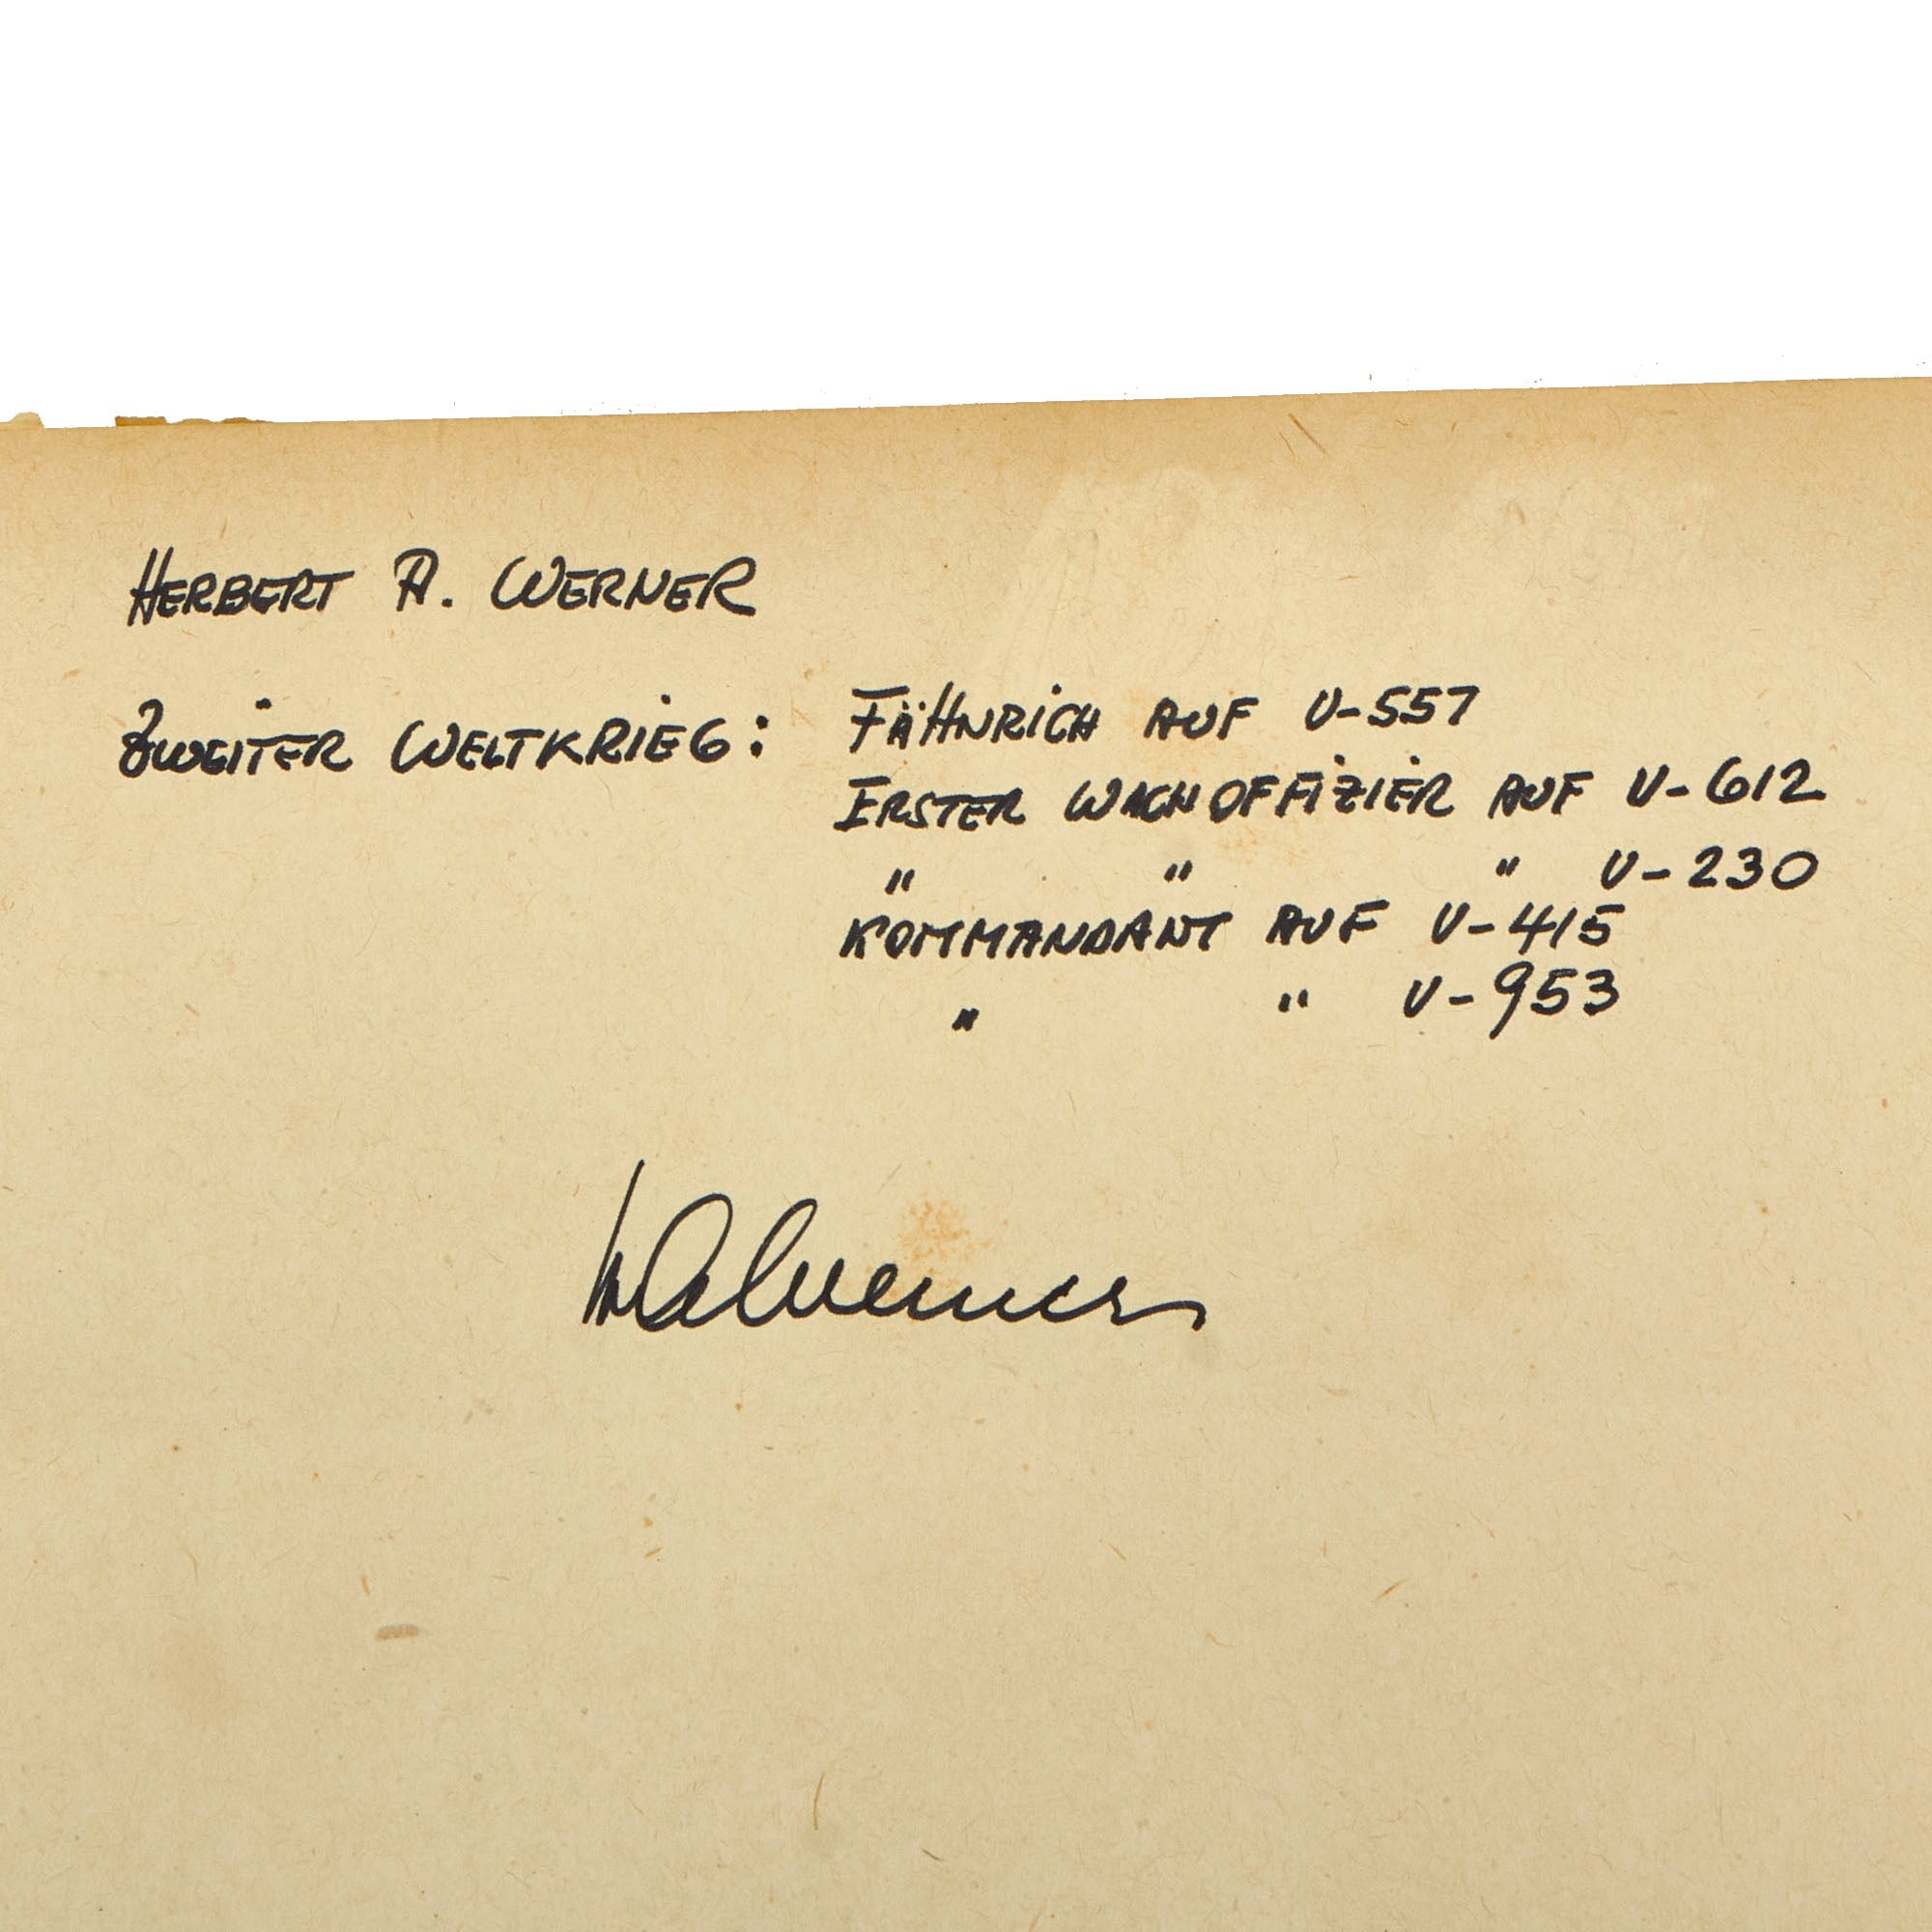 HERBERT A. WERNER
ZWEITER WELTKRIEG: FÄHNRICH AUF U-557
ERSTER WACHOFFIZIER AUF U-612
" " " U-230
KOMMANDANT AUF U-415
" " U-953
HAWerner